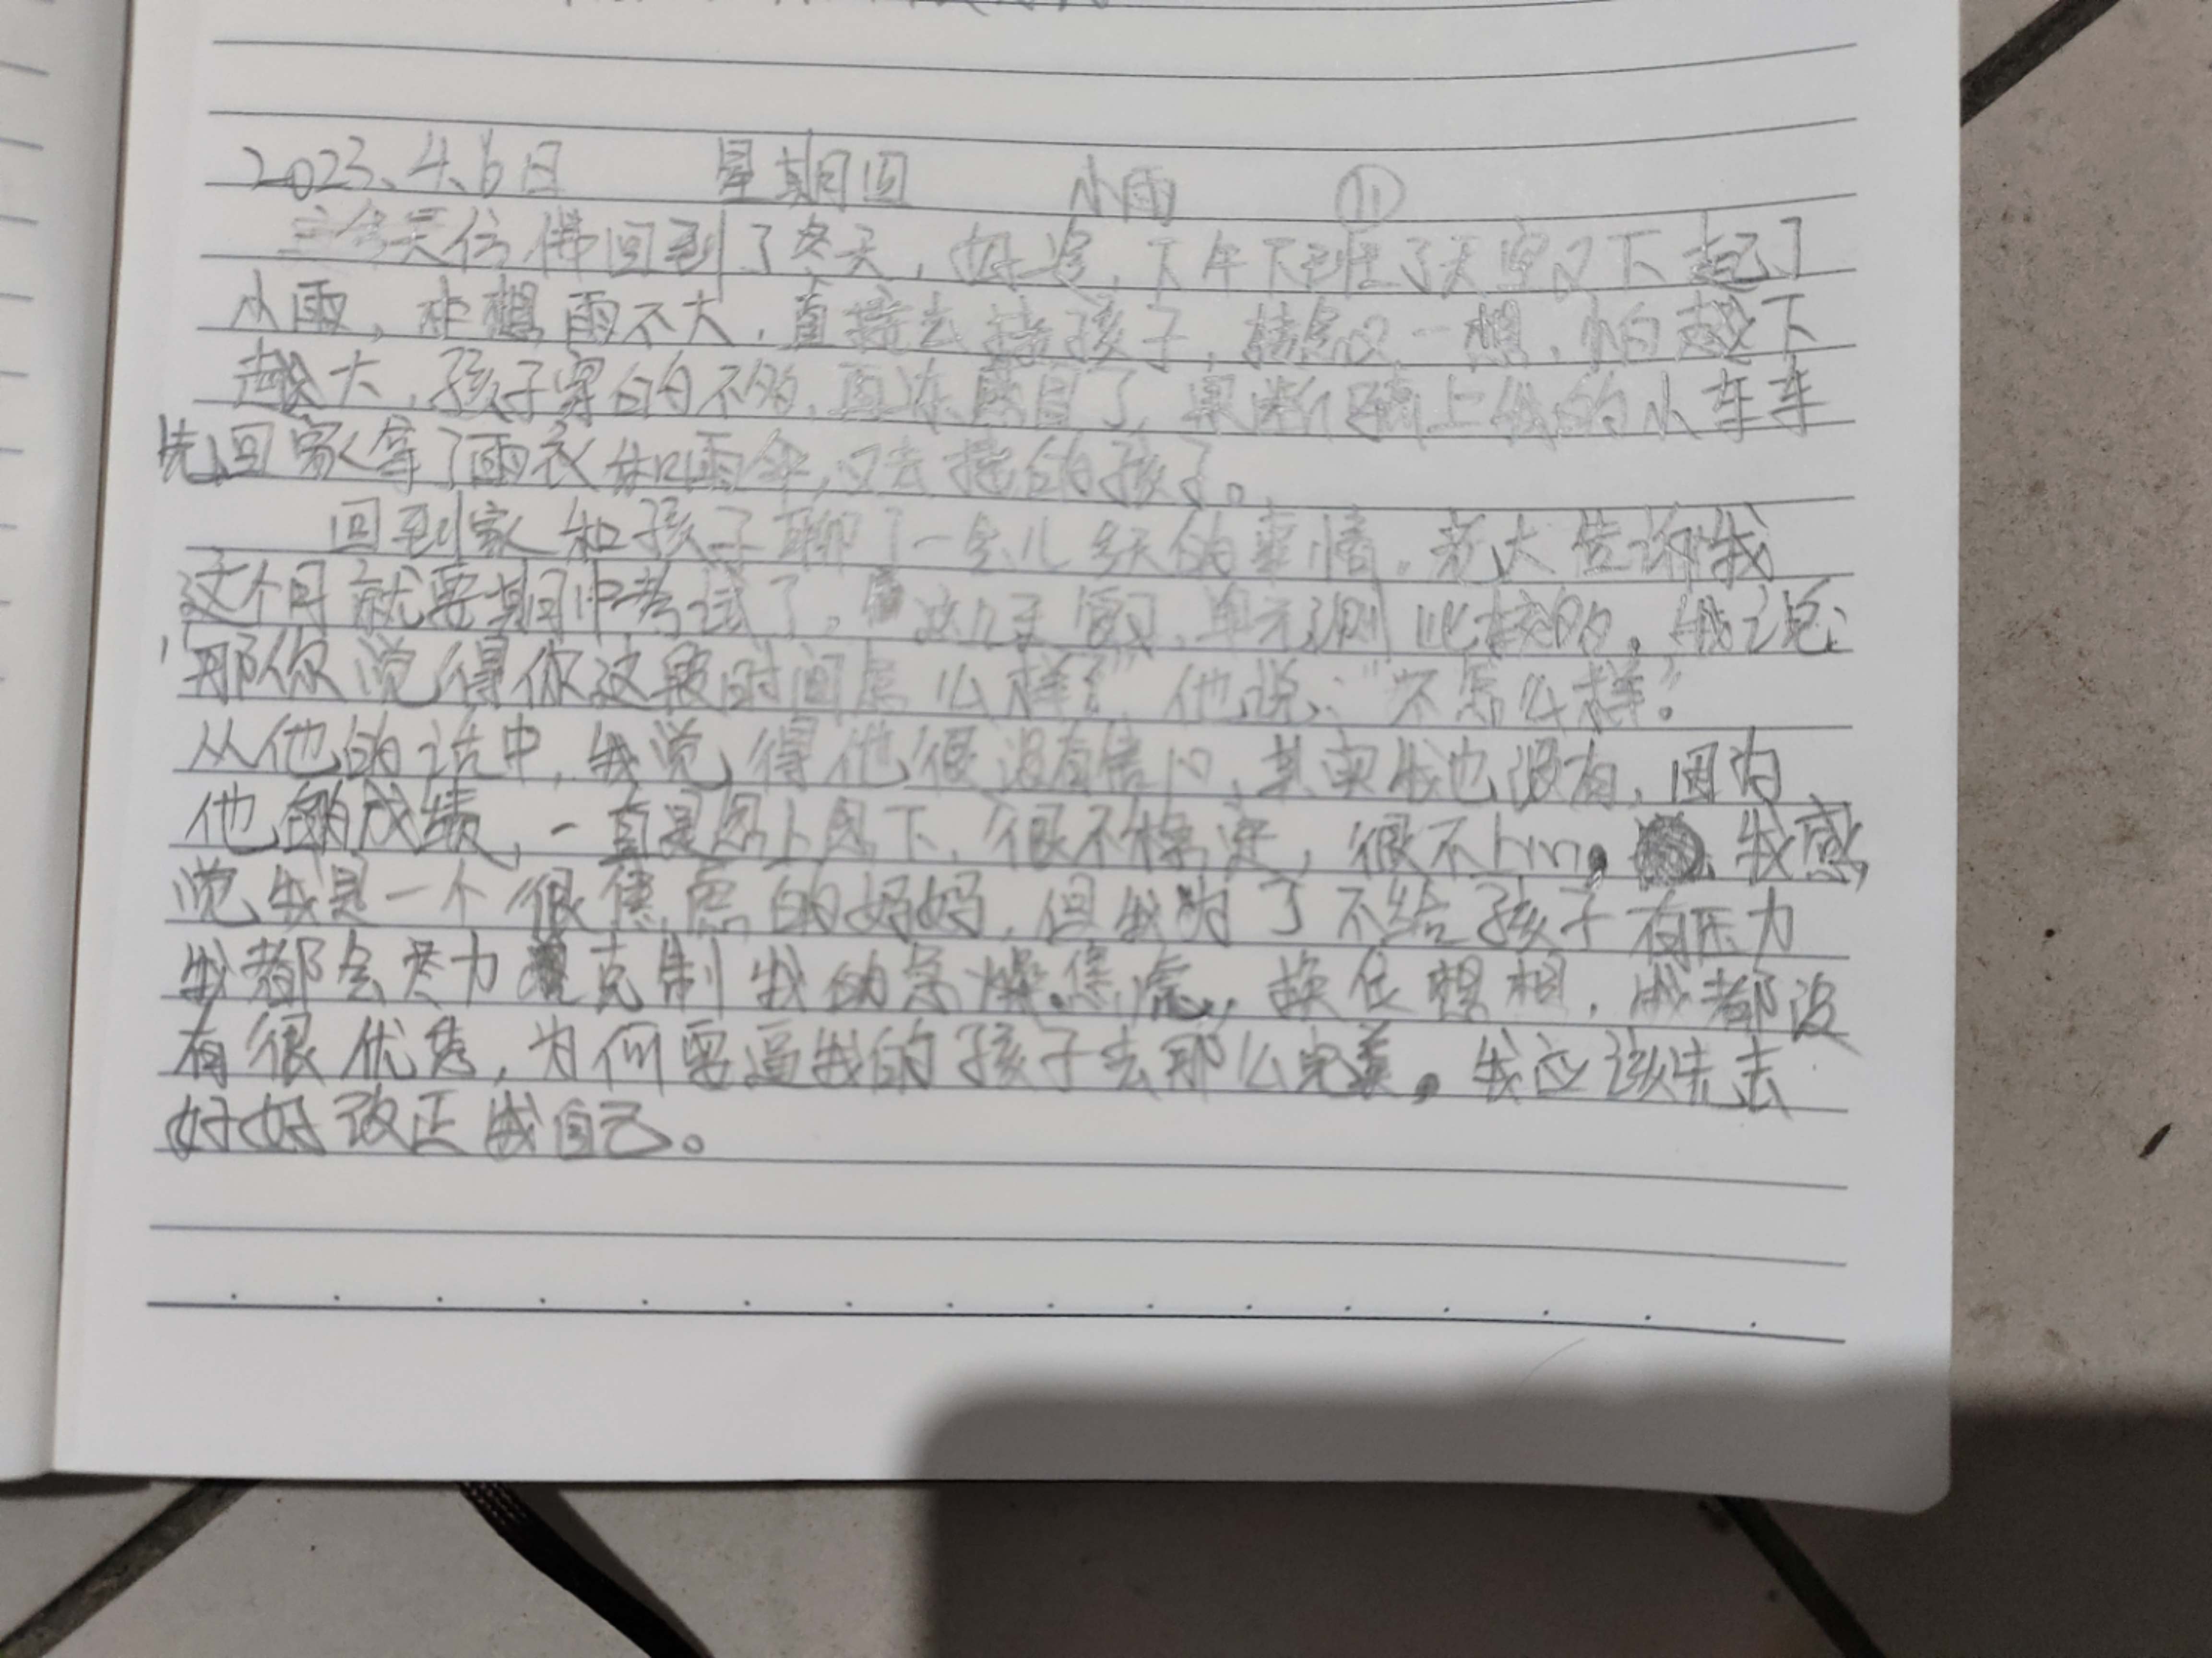 2023、4、6日 星期四 小雨 ⑪
今天仿佛回到了冬天，好冷，下午下班了天空又下起了
小雨，想雨不大，直接去接孩子，转念又一想，怕越下
越大，孩子穿的不够，再冻感冒了，果断骑上我的小车车
先回家拿了雨衣和雨伞，又去接的孩子。
回到家和孩子聊了一会儿今天的事情，老大告诉我
这个月就要期中考试了。这几天复习，单元测比较多，我说：
"那你觉得你这段时间怎么样？"他说："不怎么样？"
从他的话中，我觉得他很没有信心，其实我也没有，因为
他的成绩，一直是忽上忽下，很不稳定，很不hm。我感
觉我是一个很焦虑的妈妈，但我为了不给孩子有压力
我都会尽力克制我的急燥、焦虑，换位想想，我都没
有很优秀，为何要逼我的孩子去那么完美。我应该先去
好好改正我自己。